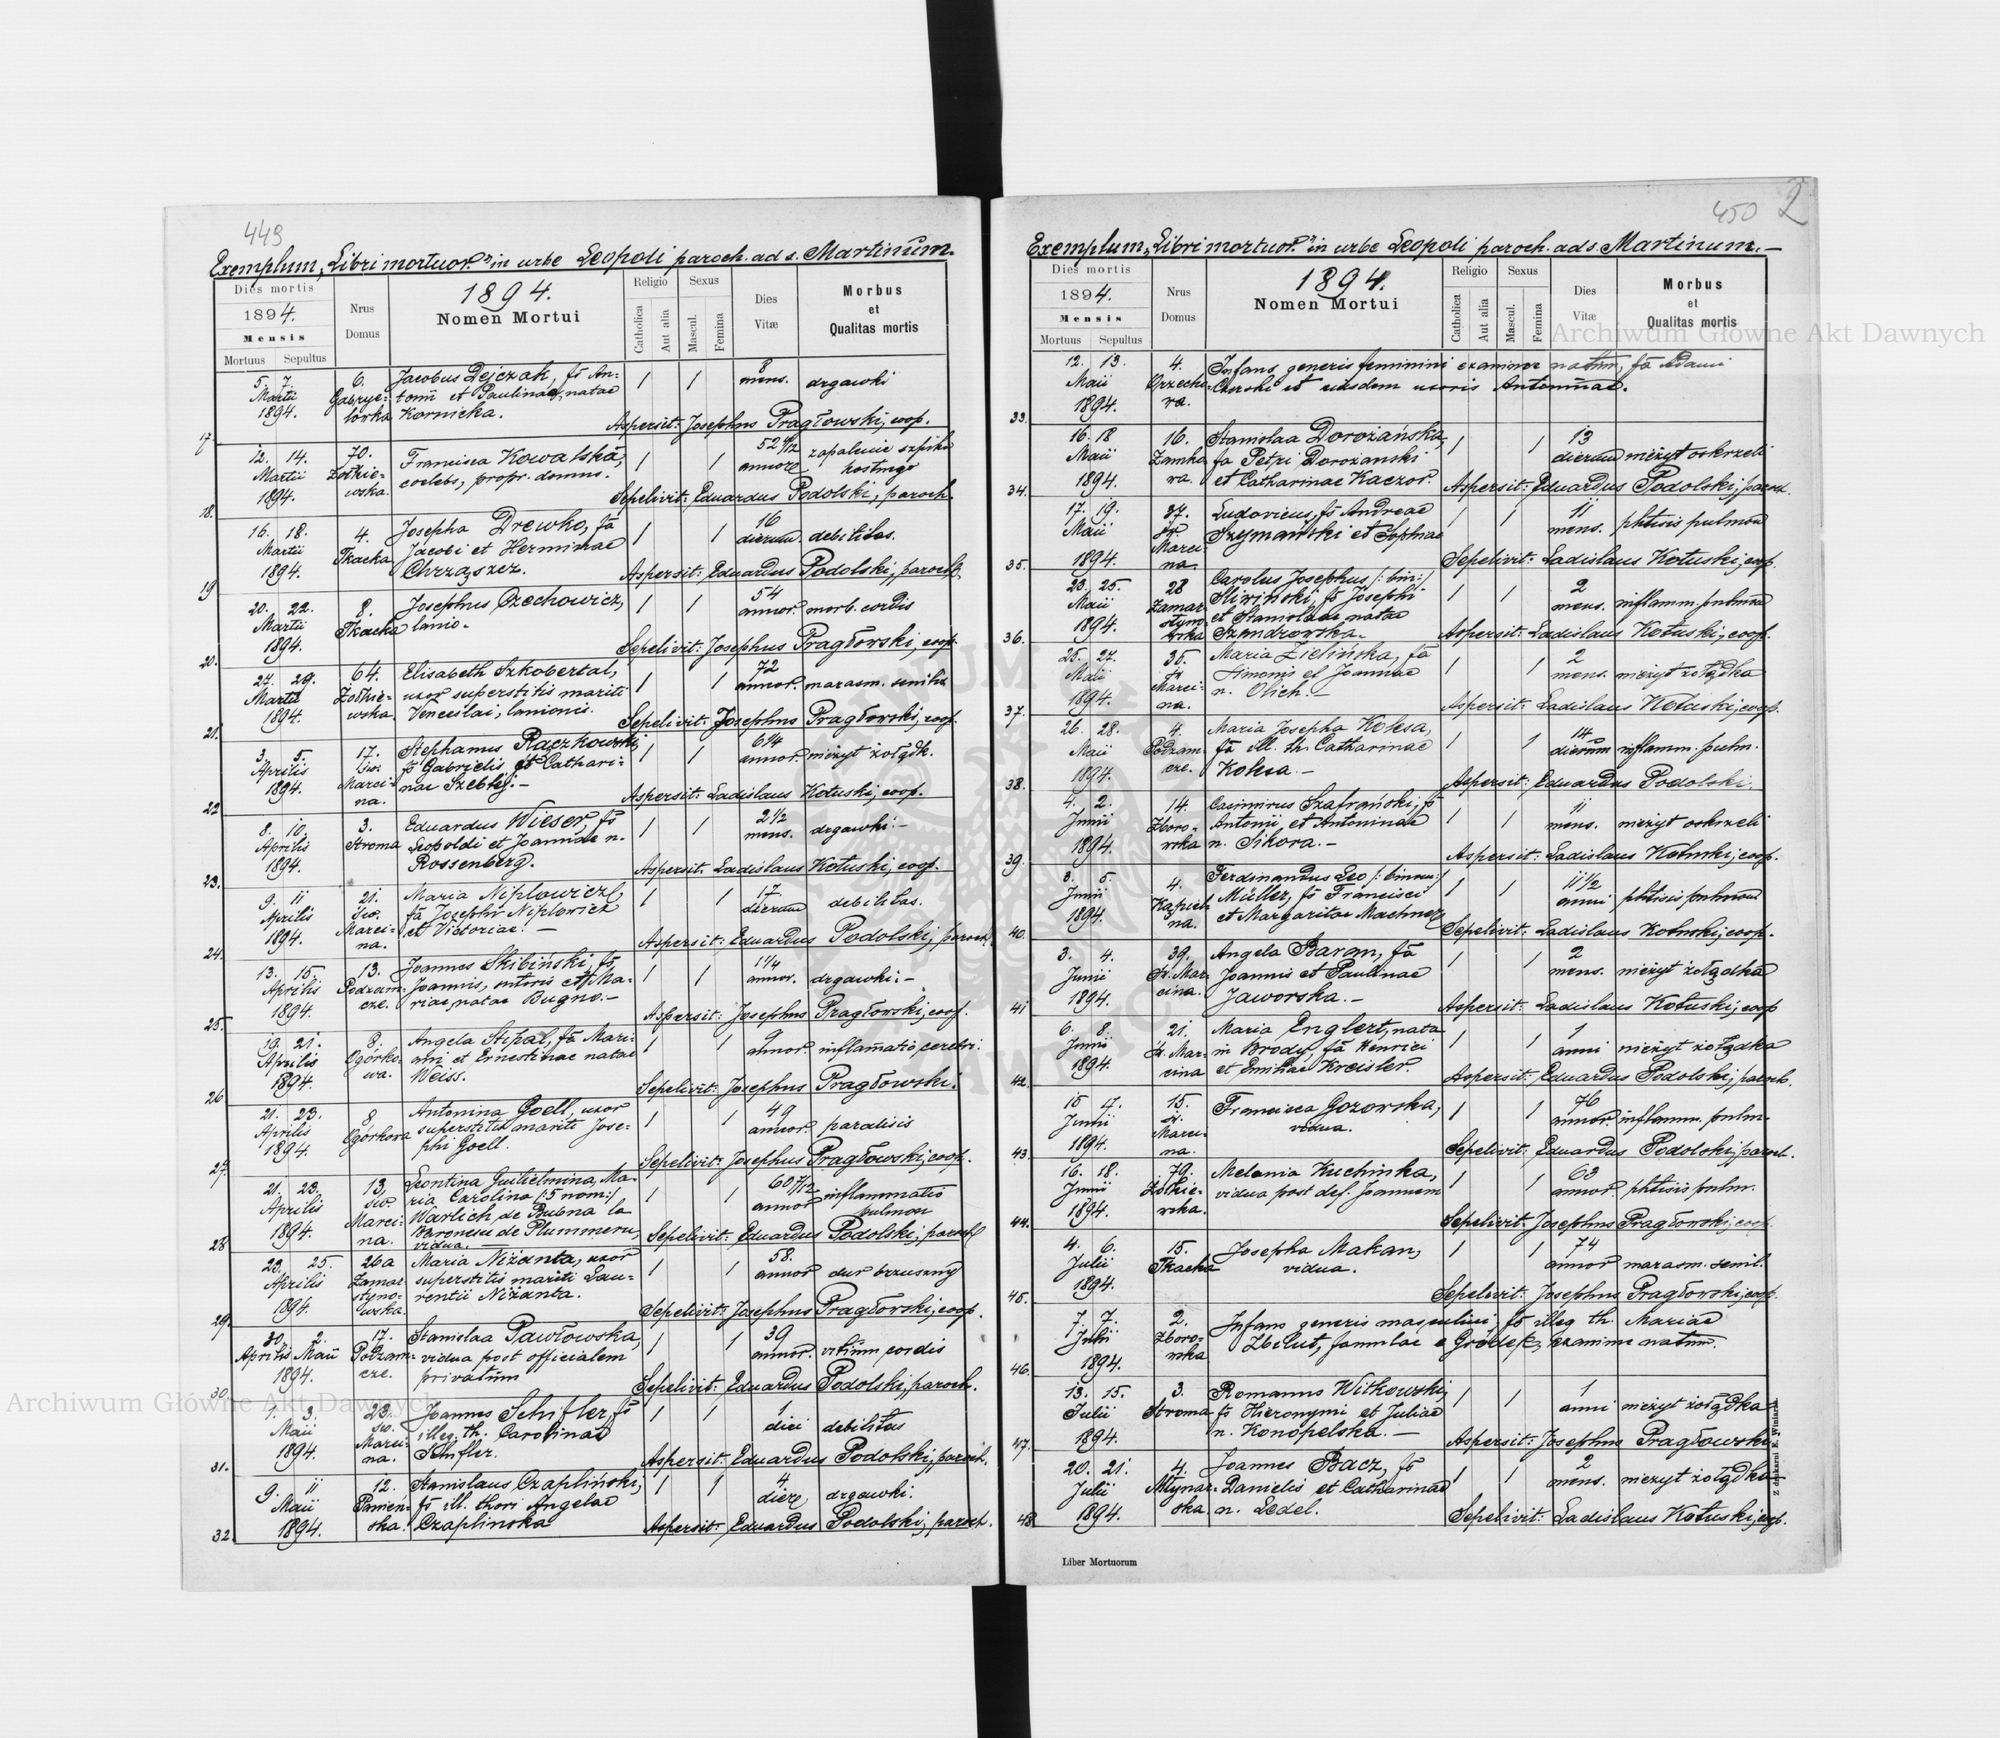 449
Exemplum „Libri mortuor.” in urbe Leopoli paroch. ad s. Martinum.
Dies mortis
1894.
Mensis
Mortuus Sepultus
Nrus
Domus
1894.
Nomen Mortui
Religio
Catholica
Aut alia
Sexus
Mascul.
Femina
Dies
Vitæ
Morbus
et
Qualitas mortis
5. 7. 6. Jacobus Dejczak, fs An- 1 1 8
Martii Gabrye- tonii et Paulinae, natae mens. drgawki
1894. lówka Kornicka.
17 Aspersit: Josephus Pragłowski, coop.
12. 14. 70. Francisca Kowalska, 1 1 zapalenie szpiku
Martii Żołkie- coelebs, propr. domus. annor. kostnego
1894. wska.
18. Sepelivit: Eduardus Podolski, paroch.
16. 18. 4. Josepha Drewko, fa 1 1 16
Martii Tkacka Jacobi et Herminae dierum debilitas.
1894. Chrząszcz.
19 Aspersit: Eduardus Podolski, paroch.
20. 22. 8. Josephus Czechowicz, 1 1 54
Martii Tkacka lanio. annor. morb. cordis
1894.
20. Sepelivit: Josephus Pragłowski, coop.
24. 29. 64. Elisabeth Szkobertal, 1 1 72
Martii Żołkie- uxor superstitis mariti annor. marasm. senilis
1894. wska. Venceslai, lanionis.
21. Sepelivit: Josephus Pragłowski, coop.
3. 5. 17. Stephanus Raczkowski, 1 1 6 1/4
Aprilis św. fs Gabrielis et Cathari- annor. nieżyt żołądk.
1894. Marci- nae Szeblij.–
na.
22 Aspersit: Ladislaus Kotuski, coop.
8. 10. 3. Eduardus Wieser, fs 1 1 2 1/2
Aprilis Stroma Leopoldi et Joannae n. mens. drgawki.–
1894. Rossenberg.
23. Aspersit: Ladislaus Kotuski, coop.
9. 11 21. Maria Niplowicz, 1 1 17.
Aprilis św. fa Josephi Niplowicz dierum debilitas.
1894. Marci- et Victoriae. –
na.
24. Aspersit: Eduardus Podolski, paroch.
13. 15. 13. Joannes Skibiński, fs 1 1 1 1/4
Aprilis Podzam- Joannis, sutoris et Ma- annor. drgawki.–
1894. cze. riae, natae Bugno.–
25. Aspersit: Josephus Pragłowski, coop.
19. 21. 8. Angela Stipal, fa Mari- 1 1 9
Aprilis Ogórko- ani et Ernestinae natae annor. inflamatio cerebri.
1894. wa. Weiss.
26 Sepelivit: Josephus Pragłowski.
21. 23. 8 Antonina Goell, uxor 1 1 49
Aprilis Ogórkowa superstitis mariti Jose- annor. paralisis
1894. phi Goell.
27. Sepelivit: Josephus Pragłowski, coop.
21. 23. 13, Leontina Guilielmina, Ma- 1 1 60 7/12
Aprilis św. ria Carolina /:5 nom:/ annor inflammatio
1894. Marci- Warlich de Bubna la pulmon
na. Baronesse de Plummern,
vidua.
28 Sepelivit: Eduardus Podolski, paroch
23. 25. 26a Maria Niżanta, uxor 1 1 58.
Aprilis Zamar- superstitis mariti Lau- annor dur brzuszny
1894. styno- rentii Niżanta.
wska.
29. Sepelivit: Josephus Pragłowski, coop.
30. 2. 17. Stanislaa Pawłowska, 1 1 39
Aprilis Maii Podzam- vidua post officialem annor. vitium cordis
1894. cze. privatum
30. Sepelivit: Eduardus Podolski, paroch.
1. 3. 23. Joannes Schifler, fs 1 1 1
Maii św. illeg. th. Carolinae diei debilitas
1894. Marci- Schifler.
na.
31. Aspersit: Eduardus Podolski, paroch.
9. 11 12. Stanislaus Czapliński, 1 1 4
Maii Panień- fs ill. thori Angelae dierum drgawki.
1894. ska. Czaplinska
32. Aspersit: Eduardus Podolski, paroch.
450 2
Exemplum „Libri mortuor.” in urbe Leopoli paroch. ad s. Martinum.–
Dies mortis
1894.
Mensis
Mortuus Sepultus
Nrus
Domus
1894.
Nomen Mortui
Religio
Catholica
Aut alia
Sexus
Mascul.
Femina
Dies
Vitæ
Morbus
et
Qualitas mortis
12. 13. 4. Infans generis feminini exanimae natum, fa Adami
Maii et eiusdem uxoris Antoninae.
1894.
33.
16. 18 16. Stanislaa Dorożańska, 1 1 13
Maii Zamko- fa Petri Dorożanski dierum nieżyt oskrzeli
1894. wa. et Catharinae Kaczor.
34. Aspersit: Eduardus Podolski, paroch.
17. 19. 37. Ludovicus, fs Andreae 1 1 11
Maii św. Szymański et Sophiae mens. phtisis pulmon
1894. Marci-
na.
35. Sepelivit: Ladislaus Kotuski, coop.
23. 25. 28 Carolus Josephus /: bin:/ 1 1 2
Maii Zamar- Sliwiński, fs Josephi mens. inflamm. pulmon
1894. styno- et Stanislaae natae
wska
36. Aspersit: Ladislaus Kotuski, coop.
25. 27. 35. Maria Zielińska, fa 1 1 2
Maii św. Simonis et Joannae mens. nieżyt żołądka
1894. Marci- n. Olich.–
na.
37. Aspersit: Ladislaus Kotuski, coop.
26. 28. 4. Maria Josepha Koksa, 1 1 14
Maii Podzam- fa ill. th. Catharinae dierum inflamm. pulm.
1894. cze. Koksa. –
38. Aspersit: Eduardus Podolski,
4. 2. 14. Casimirus Szafrański, fs 1 1 11
Junii Zboro- Antonii et Antoninae mens. nieżyt oskrzeli
1894. wska n. Sikora.–
39. Aspersit: Ladislaus Kotuski, coop.
3. 5. 4. Ferdinandus Leo 1 1 11 1/2
Junii Kąpiel- Müller, fs Francisci anni phtisis pulmon
1894. na. et Margaritae
40. Sepelivit: Ladislaus Kotuski, coop.
3. 4. 39, Angela Baran, fa 1 1 2
Junii Św. Mar- Joannis et Paulinae mens. nieżyt żołądka
1894. cina. Jaworska. –
41 Aspersit: Ladislaus Kotuski, coop
6. 8. 21. Maria Englert, nata 1 1 1
Junii Św. Mar- in Brody, fa Henrici anni nieżyt żołądka
1894. cina et Emiliae Kreisler.
42. Aspersit: Eduardus Podolski, paroch.
15 17. 15. Francisca Gozowska, 1 1 76
Junii Św. vidua. annor inflamm. pulm.
1894. Marci-
na.
43. Sepelivit: Eduardus Podolski, paroch.
16. 18. 79. Melania Kuchinka, 1 1 63
Junii Żołkie- vidua post def. Joannem annor phtisis pulm.
1894. wska.
44. Sepelivit: Josephus Pragłowski, coop.
4. 6. 15. Josepha Makan, 1 1 74
Julii Tkacka vidua. annor marasm. senil.
1894.
45. Sepelivit: Josephus Pragłowski, coop.
7. 7. 2. Infans generis masculini, fs illeg th. Mariae
Julii Zboro- Zbelut, famulae e Gródek, exanime natum.
1894. wska
46.
13. 15. 3. Romanus Witkowski, 1 1 1
Julii Stroma fs Hieronymi et Juliae anni nieżyt żołądka
1894. n. Konópelska. –
47. Aspersit: Josephus Pragłowski
20. 21. 4. Joannes Bacz, fs 1 1 2
Julii Młynar- Danielis et Catharinae mens. nieżyt żołądka
1894. ska n. Ledel.
48. Sepelivit: Ladislaus Kotuski, coop.
Z drukarni E. Winiarza
Liber Mortuorum
Archiwum Główne Akt Dawnych
Archiwum Główne Akt Dawnych